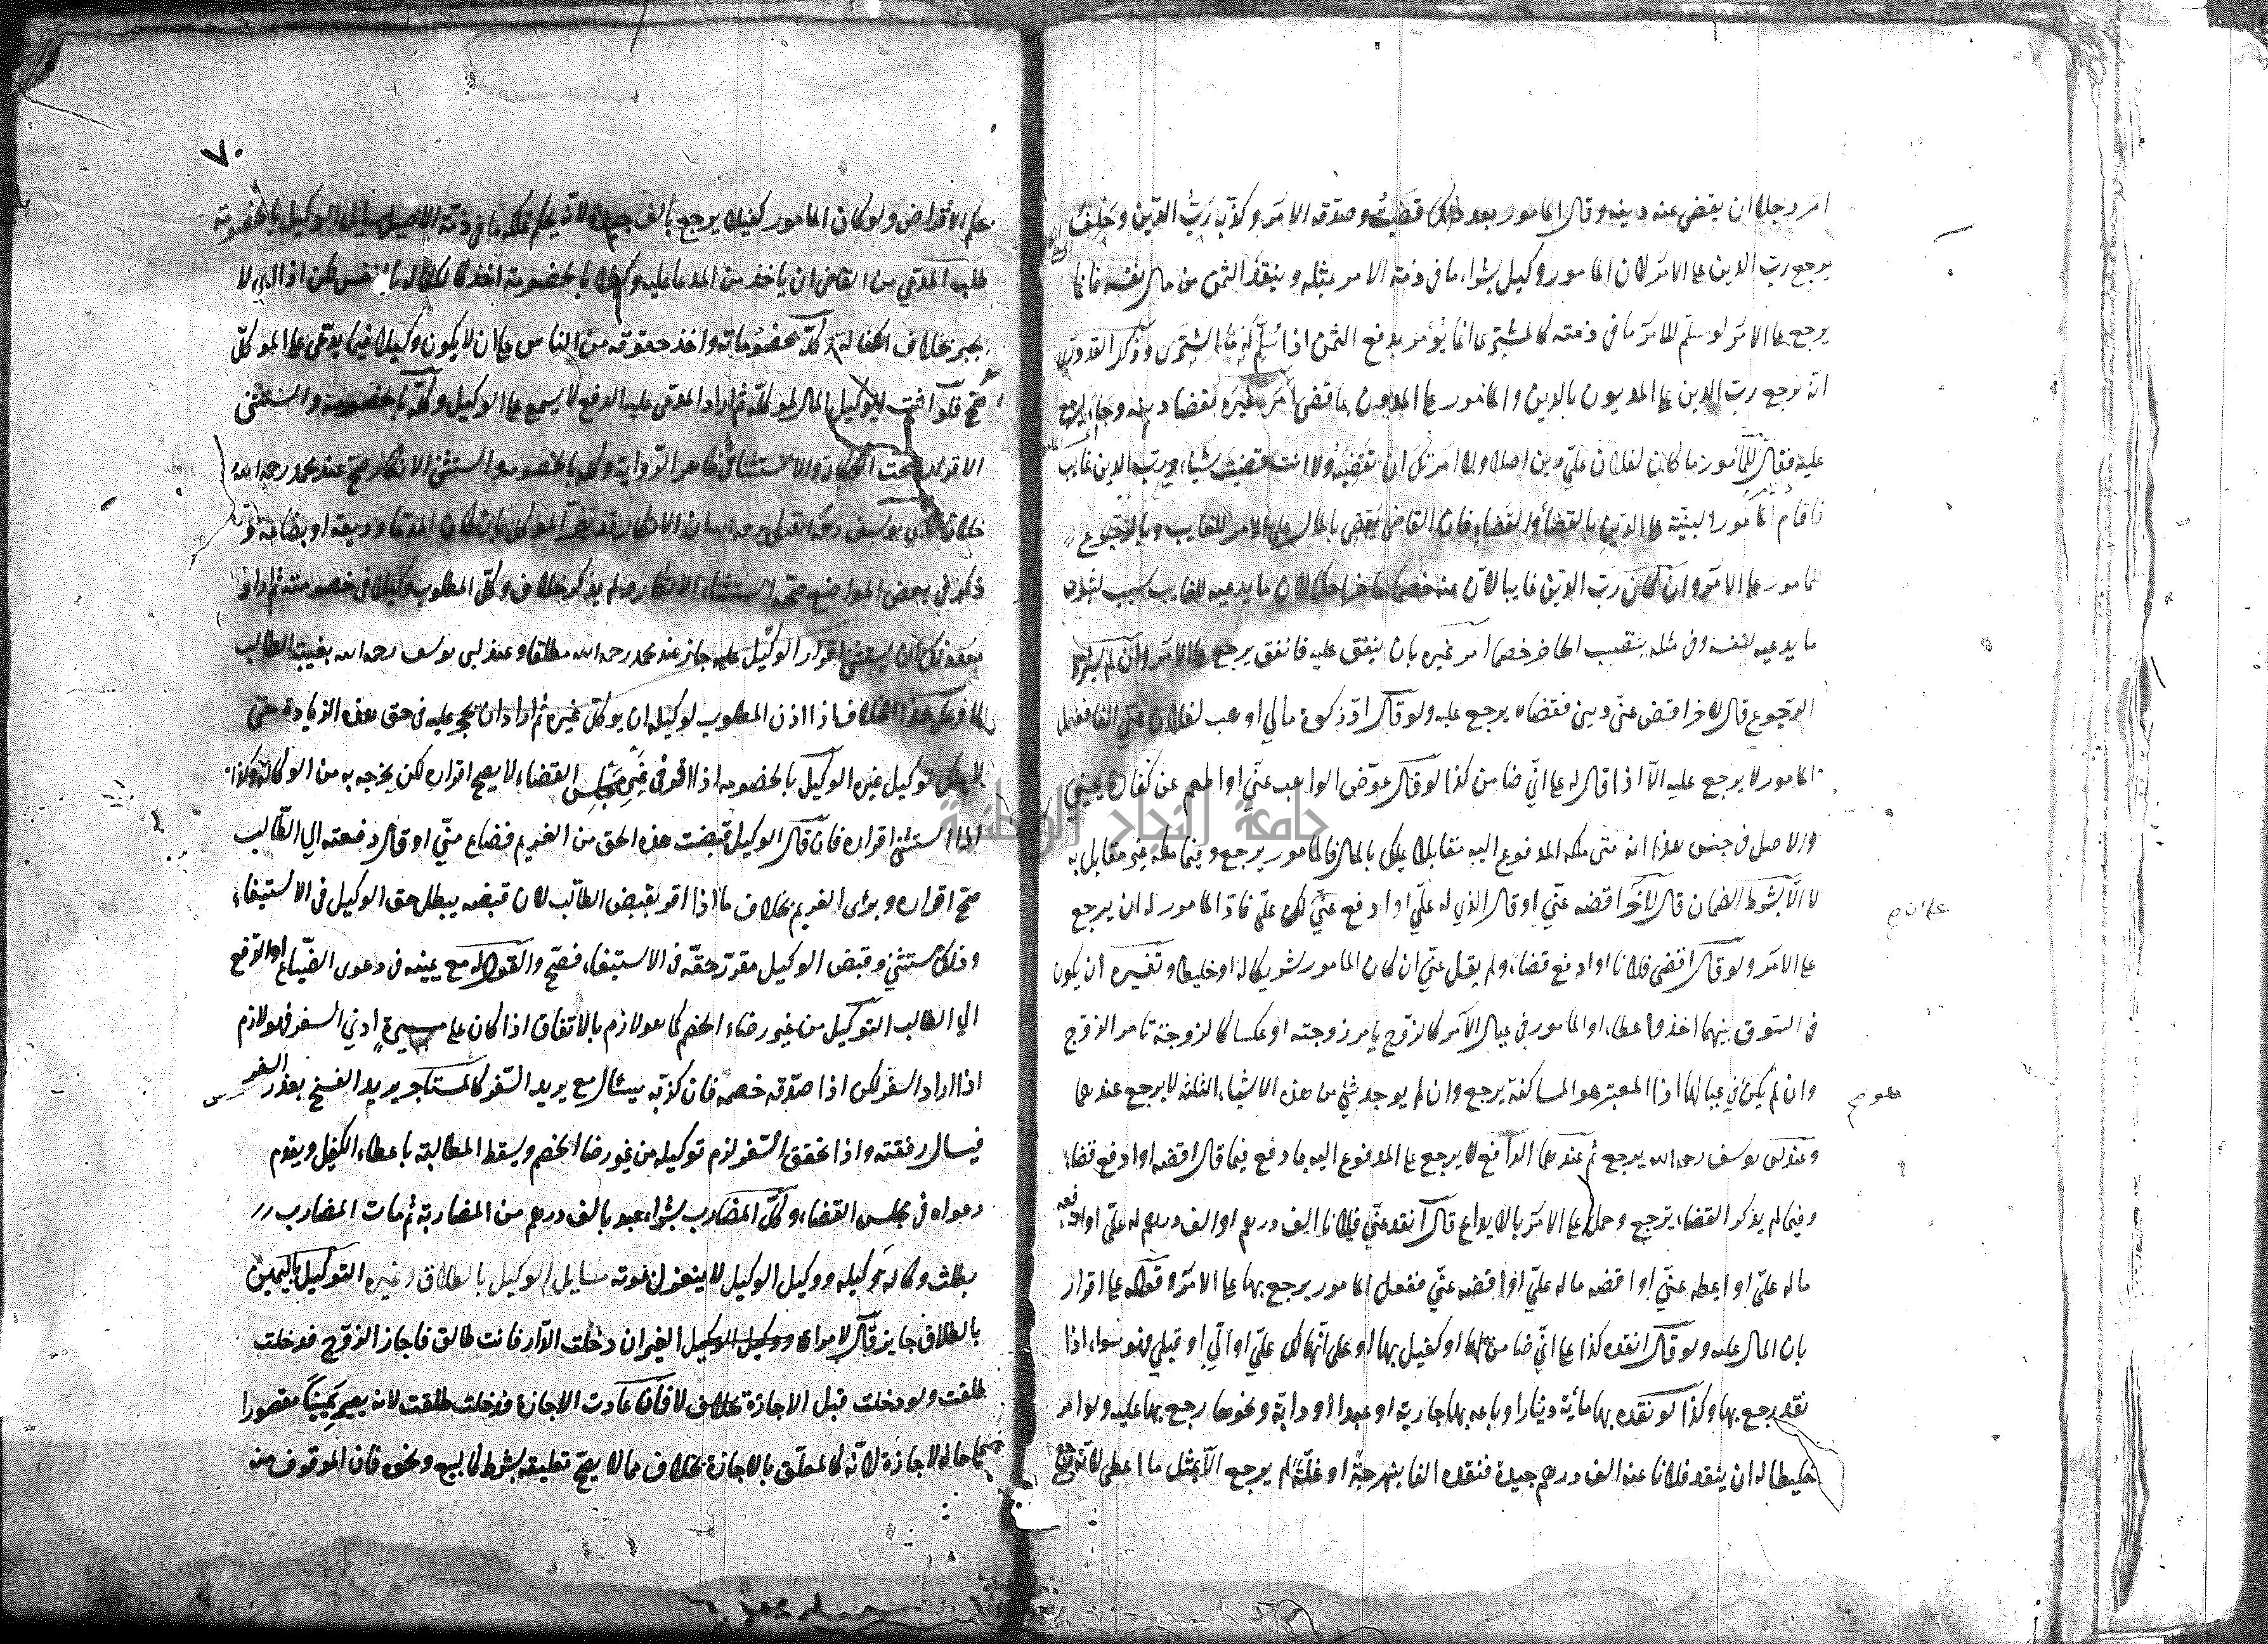 امر رجلا ان يقضي عنه دينه وقال المامور بعد ذلك قضيت وصدقه الامر وكذبه رب الدين وحلف
يرجع رب الدين على الامر لان المامور وكيل بشراء ما في ذمة الامر بمثله وينقد الثمن من مال نفسه فانما
يرجع على الامر لو سلم للامر ما في ذمته كالمشتري انما يؤمر بدفع الثمن اذا سلم له المشترى وذكر القدوري
انه يرجع رب الدين على المديون بالدين والمامور على المديون بما قضى امر غيره بقضاء دينه وجاء ليرجع
عليه فقال للمأمور ما كان لفلان علي دين اصلا ولا امرتك ان تقضيه ولا انت قضيت شيا ورب الدين غايب
فاقام المامور البينة على الدين بالقضاء والقضاء فان القاضي يقضي بالمال على الامر للغايب وبالرجوع
للمامور على الامر وان كان رب الدين غايبا لان عنه خصما حاضرا حكما لان ما يدعيه للغايب سبب لثبوت
ما يدعيه لنفسه وفي مثله ينتصب الحاضر خصما امر غيره بان ينفق عليه فانفق يرجع على الامر وان لم يشترط
الرجوع قال لاخر اقض عني ديني فقضاه يرجع عليه ولو قال اد زكوة مالي او هب لفلان عني الفا ففعل
المامور لا يرجع عليه الا اذا قال له على اني ضامن كذا لو قال عوض الواهب عني او اطعم عن كفارة يميني
والاصل في جنس هذا انه متى ملكه المدفوع اليه مقابلا بملك بالمال فالمامور يرجع وفيما ملكه غير مقابل به
لا الا بشرط الضمان قال لاخر اقضه عني او قال الذي له علي او ادفع عني لك علي فاد المامور له ان يرجع
على ان صح
على الامر ولو قال اقض فلانا او ادفع قضاء ولم يقل عني ان كان المامور شريكا له او خليطا وتفسيره ان يكون
في السوق بينهما اخذ واعطاء او المامور في عيال الآمر كالزوج يامر زوجته او عكسا كالزوجة تامر الزوج
وان لم يكن في عيالها اذا المعتبر هو المساكنة يرجع وان لم يوجد شي من هذه الاشياء الثلثة لا يرجع عندهما
هو صح
وعند ابي يوسف رحمه الله يرجع ثم عندهما الدافع لا يرجع على المدفوع اليه بما دفع فيما قال اقضه او ادفع قضاء
وفيما لم يذكر القضاء يرجع وحمل على الامر بالايداع قال انقد عني فلانا الف درهم او الف درهم له علي او ادفعه
ماله علي او اعطه عني او اقضه ماله علي او اقضه عني ففعل المامور يرجع بها على الامر وقوله على اقرار
بان المال عليه ولو قال انقده كذا على اني ضامن لها او كفيل بها او على انها لك علي او الي او قبلي فهو سواء اذا
نقد يرجع بها وكذا لو نقده بها مائة دينار او باعه بها جارية او عبدا او دابة ونحوها رجع بها عليه ولو امر
خليطا له ان ينقد فلانا عنه الف درهم جيدة فنقده الفا بنهرجة او غلة لم يرجع الا بمثل ما اعطى لانه يرجع
٧٠
بحكم الاقراض ولو كان المامور كفيلا يرجع بالف جيدة لانه بحكم تملكه ما في ذمة الاصيل مسايل الوكيل بالخصومة
طلب المدعي من القاضي ان ياخذ من المدعا عليه وكيلا بالخصومة اخذ كالكفالة بالنفس لكن اذا ابى لا
يجبر بخلاف الكفالة وكله بخصوماته واخذ حقوقه من الناس على ان لا يكون وكيلا فيما يدعى على الموكل
صح فلو اثبت الوكيل المال لموكله ثم اراد المدعى عليه الدفع لا يسمع على الوكيل وكله بالخصومة واستثنى
الاقرار صحت الوكالة والاستثناء في ظاهر الرواية وكله بالخصومة واستثنى الانكار صح عند محمد رحمه الله
خلافا لابي يوسف رحمه الله لان الانكار قد يضر الموكل بان كان المدعا وديعة او بضاعة وقد
ذكر في بعض المواضع صحة استثناء الانكار ولم يذكر خلاف وكل المطلوب وكيلا في خصومته ثم اراد
بعد ذلك ان يستثني اقرار الوكيل عليه جاز عند محمد رحمه الله مطلقا وعند ابي يوسف رحمه الله بغيبة الطالب
لا وعلى هذا الخلاف اذا اذن المطلوب لوكيله ان يوكل غيره ثم اراد ان يحجر عليه في حق هذه الزيادة حتى
لا يملك توكيل غيره الوكيل بالخصومة اذا اقر في غير مجلس القضاء لا يصح اقراره لكن يخرجه به من الوكالة وكذا
اذا استثنى اقراره فان قال الوكيل قبضت هذه الحق من الغريم فضاع مني او قال دفعته الي الطالب
صح اقراره وبرئ الغريم بخلاف ما اذا اقر بقبض الطالب لان قبضه يبطل حق الوكيل في الاستيفاء
وذلك مستثني وقبض الوكيل مقرر حقه في الاستيفاء فصح والقول له مع يمينه في دعوى الضياع او الدفع
الي الطالب التوكيل من غير رضاء الخصم كما هو لازم بالاتفاق اذا كان على مسيرة ادني السفر فهو لازم
اذا اراد السفر لكن اذا صدقه خصمه فان كذبه يسئال مع من يريد السفر كالمستاجر يريد الفسخ بعذر السفر
فيسال رفقته واذا تحقق السفر لزم توكيله من غير رضا الخصم ويسقط المطالبة باعطاء الكفيل ويقوم
دعواه في مجلس القضاء وكل المضارب بشراء عبد بالف درهم من المضاربة ثم مات المضارب
بطلت وكالة وكيله ووكيل الوكيل لا ينعزل بموته مسايل الوكيل بالطلاق وغيره التوكيل باليمين
بالطلاق جايز قال لامراة الغير ان دخلت الدار فانت طالق فاجاز الزوج فدخلت
طلقت ولو دخلت قبل الاجازة بخلاف لا فان عادت الاجازة فدخلت طلقت لانه يصير يمينا مقصورا
على حالة الاجازة لانه كالمعلق بالاجازة بخلاف ما لا يصح تعليقه بشرط كالبيع ونحوه فان الموقوف منه
جامعة النجاح الوطنية